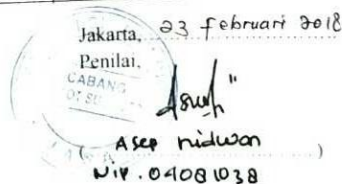 Jakarta, 23 februari 2018
Penilai,
CABANG
Asep ridwan
(....................)
NIP. 04081038